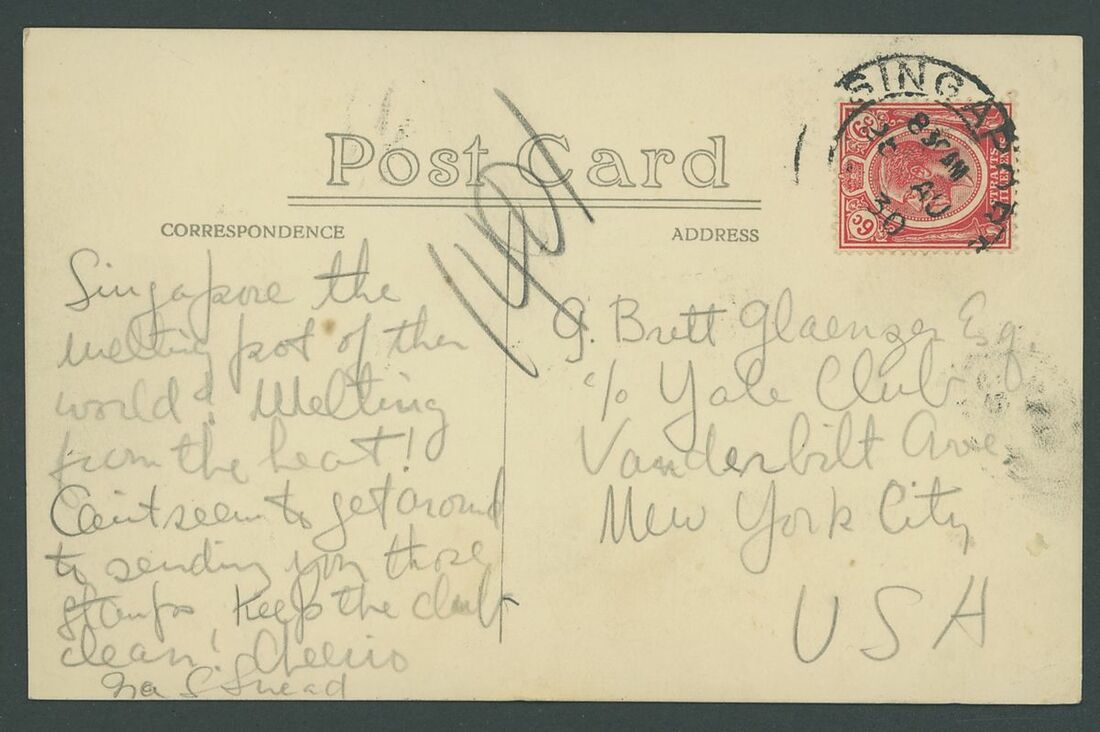 Post Card
CORRESPONDENCE
ADDRESS
SINGAPORE
8 30 AM
AU
30
STRAITS
SETTLEMENTS
6c
6c
Singapore the
melting pot of the
world! Melting
from the heat!
Can't seem to get around
to sending you those
stamps. Keep the club
clean! Cheerio
S Snead
G. Brett Glaenzer Esq.
c/o Yale Club
Vanderbilt Ave
New York City
USA